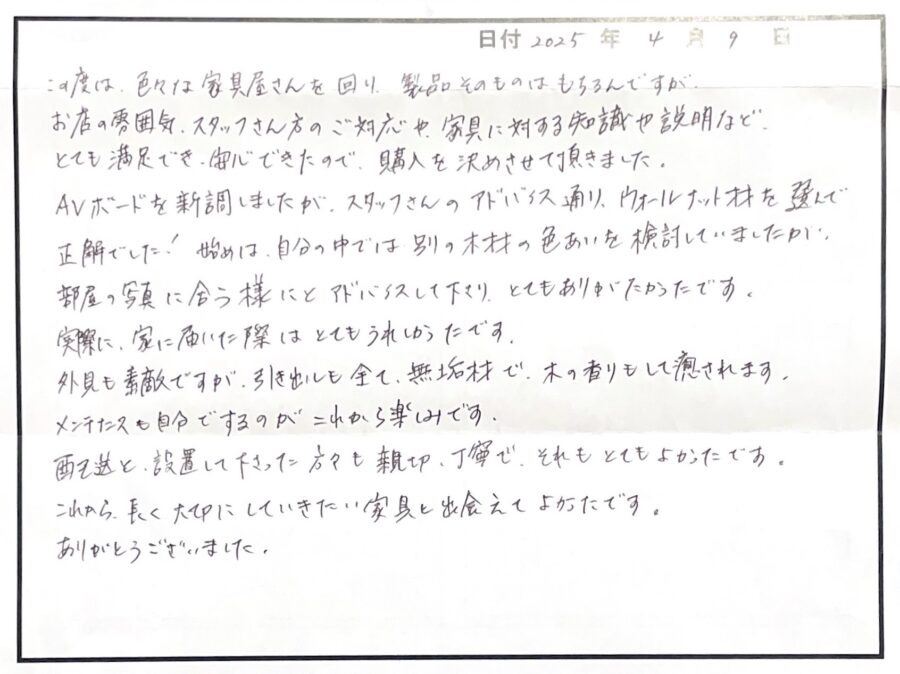 日付 2025 年 4 月 9 日
この度は、色々な家具屋さんを回り、製品そのものはもちろんですが、
お店の雰囲気、スタッフさん方のご対応や、家具に対する知識や説明など、
とても満足でき、安心できたので、購入を決めさせて頂きました。
AVボードを新調しましたが、スタッフさんのアドバイス通り、ウォールナット材を選んで
正解でした！ 始めは、自分の中では別の木材の色あいを検討していましたが、
部屋の写真に合う様にとアドバイスして下さり、とてもありがたかったです。
実際に、家に届いた際はとてもうれしかったです。
外見も素敵ですが、引き出しも全て、無垢材で、木の香りもして癒されます。
メンテナンスも自分でするのがこれから楽しみです。
配送と、設置して下さった方々も親切、丁寧で、それもとてもよかったです。
これから、長く大切にしていきたい家具と出会えてよかったです。
ありがとうございました。